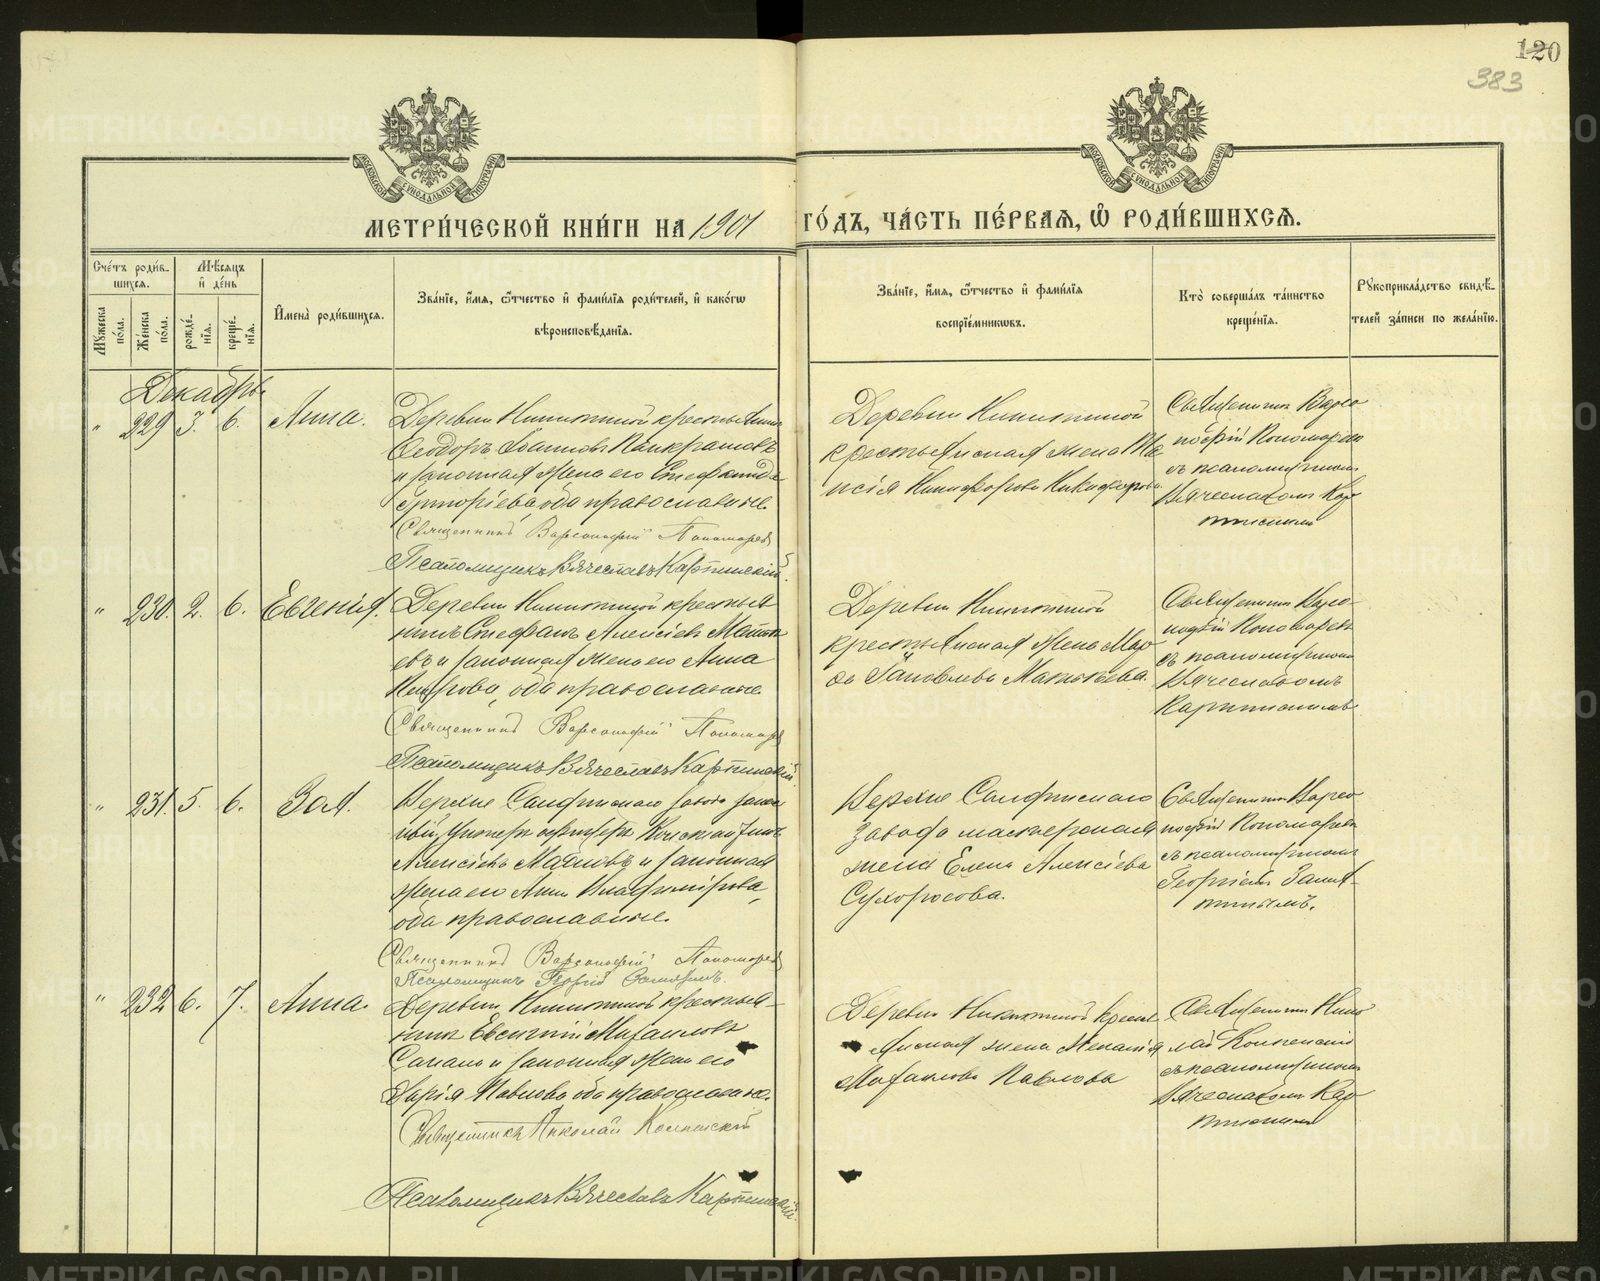 120
383
МОСКОВСКОЙ СУНОДАЛЬНОЙ ТИПОГРАФІИ
МОСКОВСКОЙ СУНОДАЛЬНОЙ ТИПОГРАФІИ
МЕТРИ́ЧЕСКОЙ КНИ́ГИ НА 1901 ГО́ДЪ, ЧА́СТЬ ПЕ́РВАЯ, Ѽ РОДИ́ВШИХСЯ.
Сче́тъ роди́в-
шихся.
Му́жеска по́ла.
Же́нска по́ла.
Мѣ́сяцъ
и҆ де́нь
рожде́-
нїя.
креще́-
нїя.
И҆мена̀ роди́вшихся.
Зва́нїе, и҆́мя, ѻ҆́тчество и҆ фами́лїя роди́телей, и҆ како́гѡ
вѣроисповѣ́данїя.
Зва́нїе, и҆́мя, ѻ҆́тчество и҆ фами́лїя
воспрїе́мникѡвъ.
Кто̀ соверша́лъ та́инство
креще́нїя.
Рꙋкоприкла́дство свидѣ́-
телей за́писи по жела́нїю.
Декабрь
" 229 3. 6. Анна.
Деревни Никитиной крестьянинъ
Феодоръ Іоанновъ Панкратовъ
и законная жена его Стефанида
Григоріева, оба православные.
Священникъ Варсонофій Пономарев
Псаломщикъ Вячеславъ Карпинскій.
Деревни Никитиной
крестьянская жена Та-
исія Никифорова Никифорова.
Священникъ Варсо-
нофій Пономаревъ
съ псаломщикомъ
Вячеславомъ Кар-
пинскимъ
" 230. 2. 6. Евгенія.
Деревни Никитиной крестья-
нинъ Стефанъ Алексіевъ
и законная жена его Анна
Петрова, оба православные.
Священникъ Варсонофій Пономарев
Псаломщикъ Вячеславъ Карпинскій.
Деревни Никитиной
крестьянская жена Мар-
Іаковлева
Священникъ Варсо-
нофій Пономаревъ
съ псаломщикомъ
Вячеславомъ
Карпинскимъ
" 231. 5. 6. Зоя.
Верхне Салдинскаго завода запас-
ный унтеръ офицеръ
Алексіевъ и законная
жена его Анна Владимірова,
оба православные.
Священникъ Варсонофій Пономарев
Псаломщикъ Георгій Замятинъ.
Верхне Салдинскаго
завода мастерская
жена Елена Алексіева
Сухоросова.
Священникъ Варсо-
нофій Пономаревъ
съ псаломщикомъ
Георгіемъ Замя-
тинымъ.
" 232 6. 7. Анна.
Деревни Никитиной крестья-
нинъ Евсигній Михаиловъ
и законная жена его
Дарія Павлова, оба православные.
Священникъ Николай
Псаломщикъ Вячеславъ Карпинскій
Деревни Никитиной кресть-
янская жена Меланія
Михаилова Павлова
Священникъ Нико-
лай
съ псаломщикомъ
Вячеславомъ Кар-
пинскимъ
METRIKI.GASO-URAL.RU